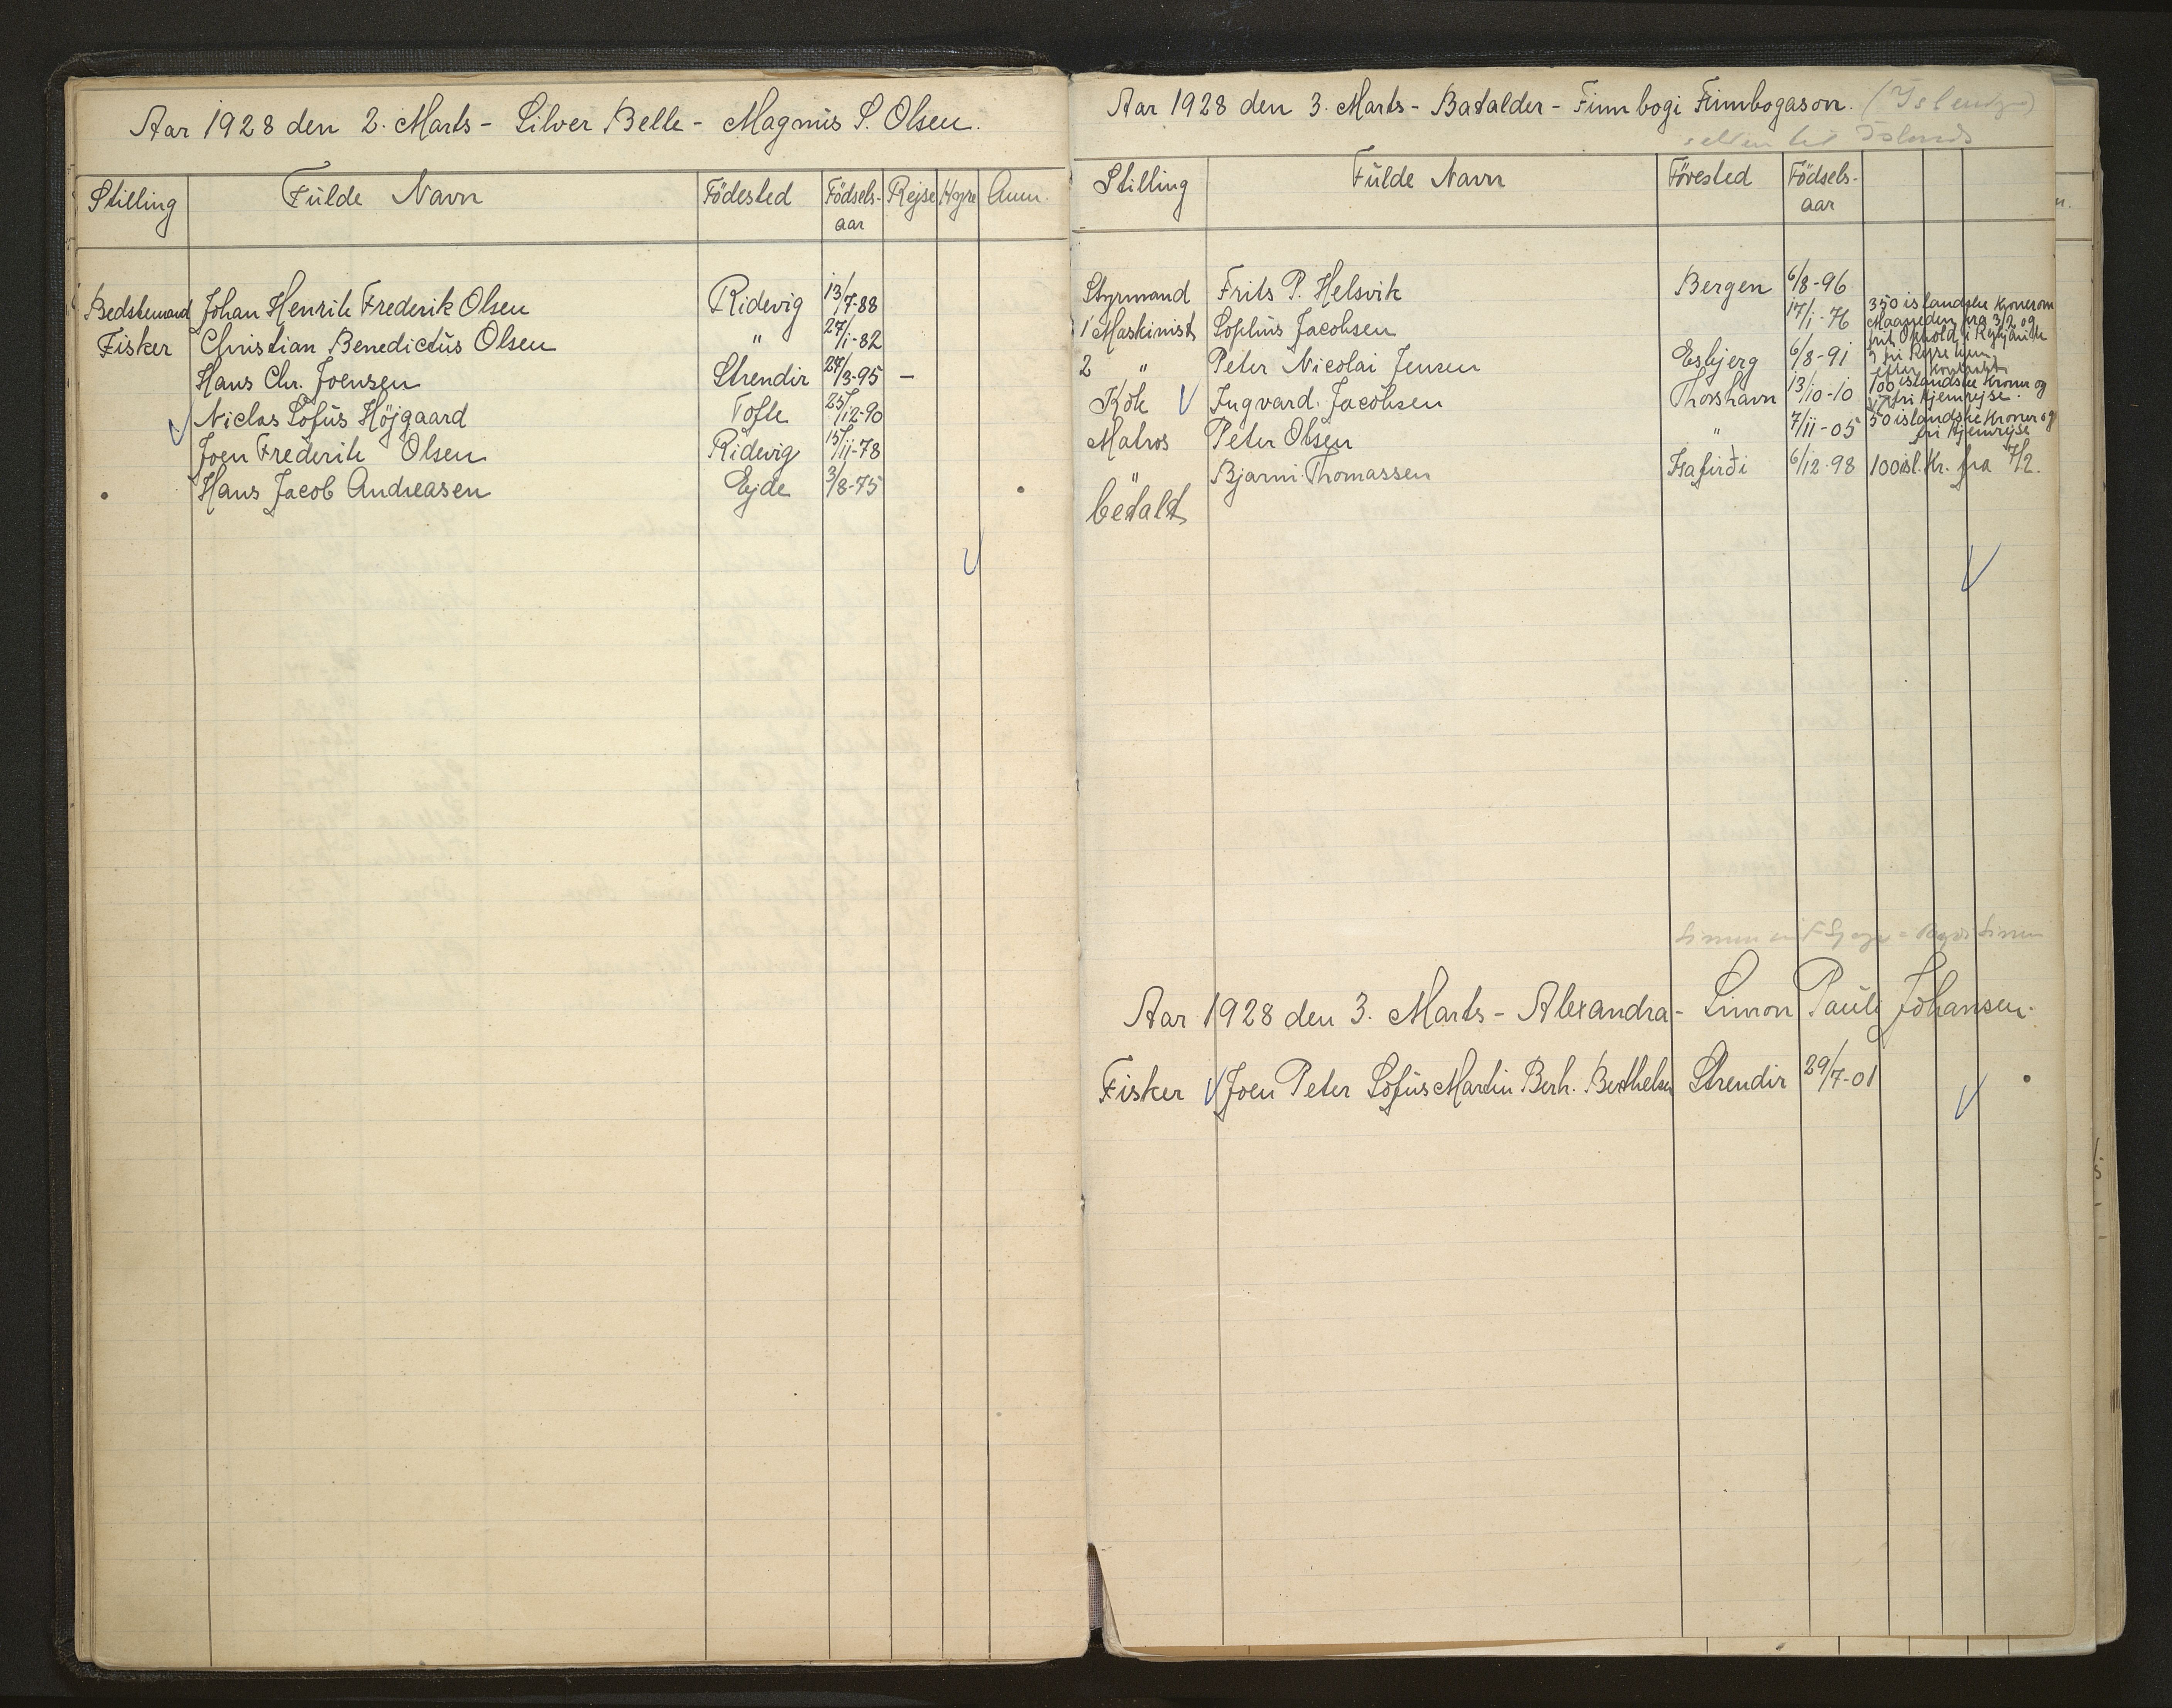 Aar 1928 den 2. Marts - Silver Belle - Magnus S. Olsen.
Stilling Fulde Navn Födested Födsels-aar Rejse Hyre Anm.
Bedstemand Johan Henrik Frederik Olsen Ridevig 13/7-88
Fisker Christian Benedictus Olsen " 27/1-82
Hans Chr. Joensen Strendir 24/3-95 -
Niclas Sofus Höjgaard Tofte 25/12-90
Joen Frederik Olsen Ridevig 15/11-78
Hans Jacob Andreasen Ejde 3/8-75
Aar 1928 den 3. Marts - Batalder - Finnbogi Finnbogason.
til Islands
Stilling Fulde Navn Förested Födsels-aar
Styrmand Frits P. Helsvik Bergen 6/8-96
1 Maskinist Sophus Jacobsen 17/1-76 350 islandske Kroner om Maaneden fra 3/2 og frit Ophold i Reykjavik
2 " Peter Nicolai Jensen Esbjerg 6/8-91
Kok Ingvard Jacobsen Thorshavn 13/10-10 100 islandske Kroner og fri Hjemrejse.
Matros Peter Olsen " 7/11-05 50 islandske Kroner og fri Hjemrejse
" Bjarni Thomassen Isafirði 6/12-98 100 isl. Kr. fra
betalt
Aar 1928 den 3. Marts - Alexandra - Simon Pauli Johansen.
Fisker Joen Peter Sofus Martin Berh. Berthelsen Strendir 29/7-01